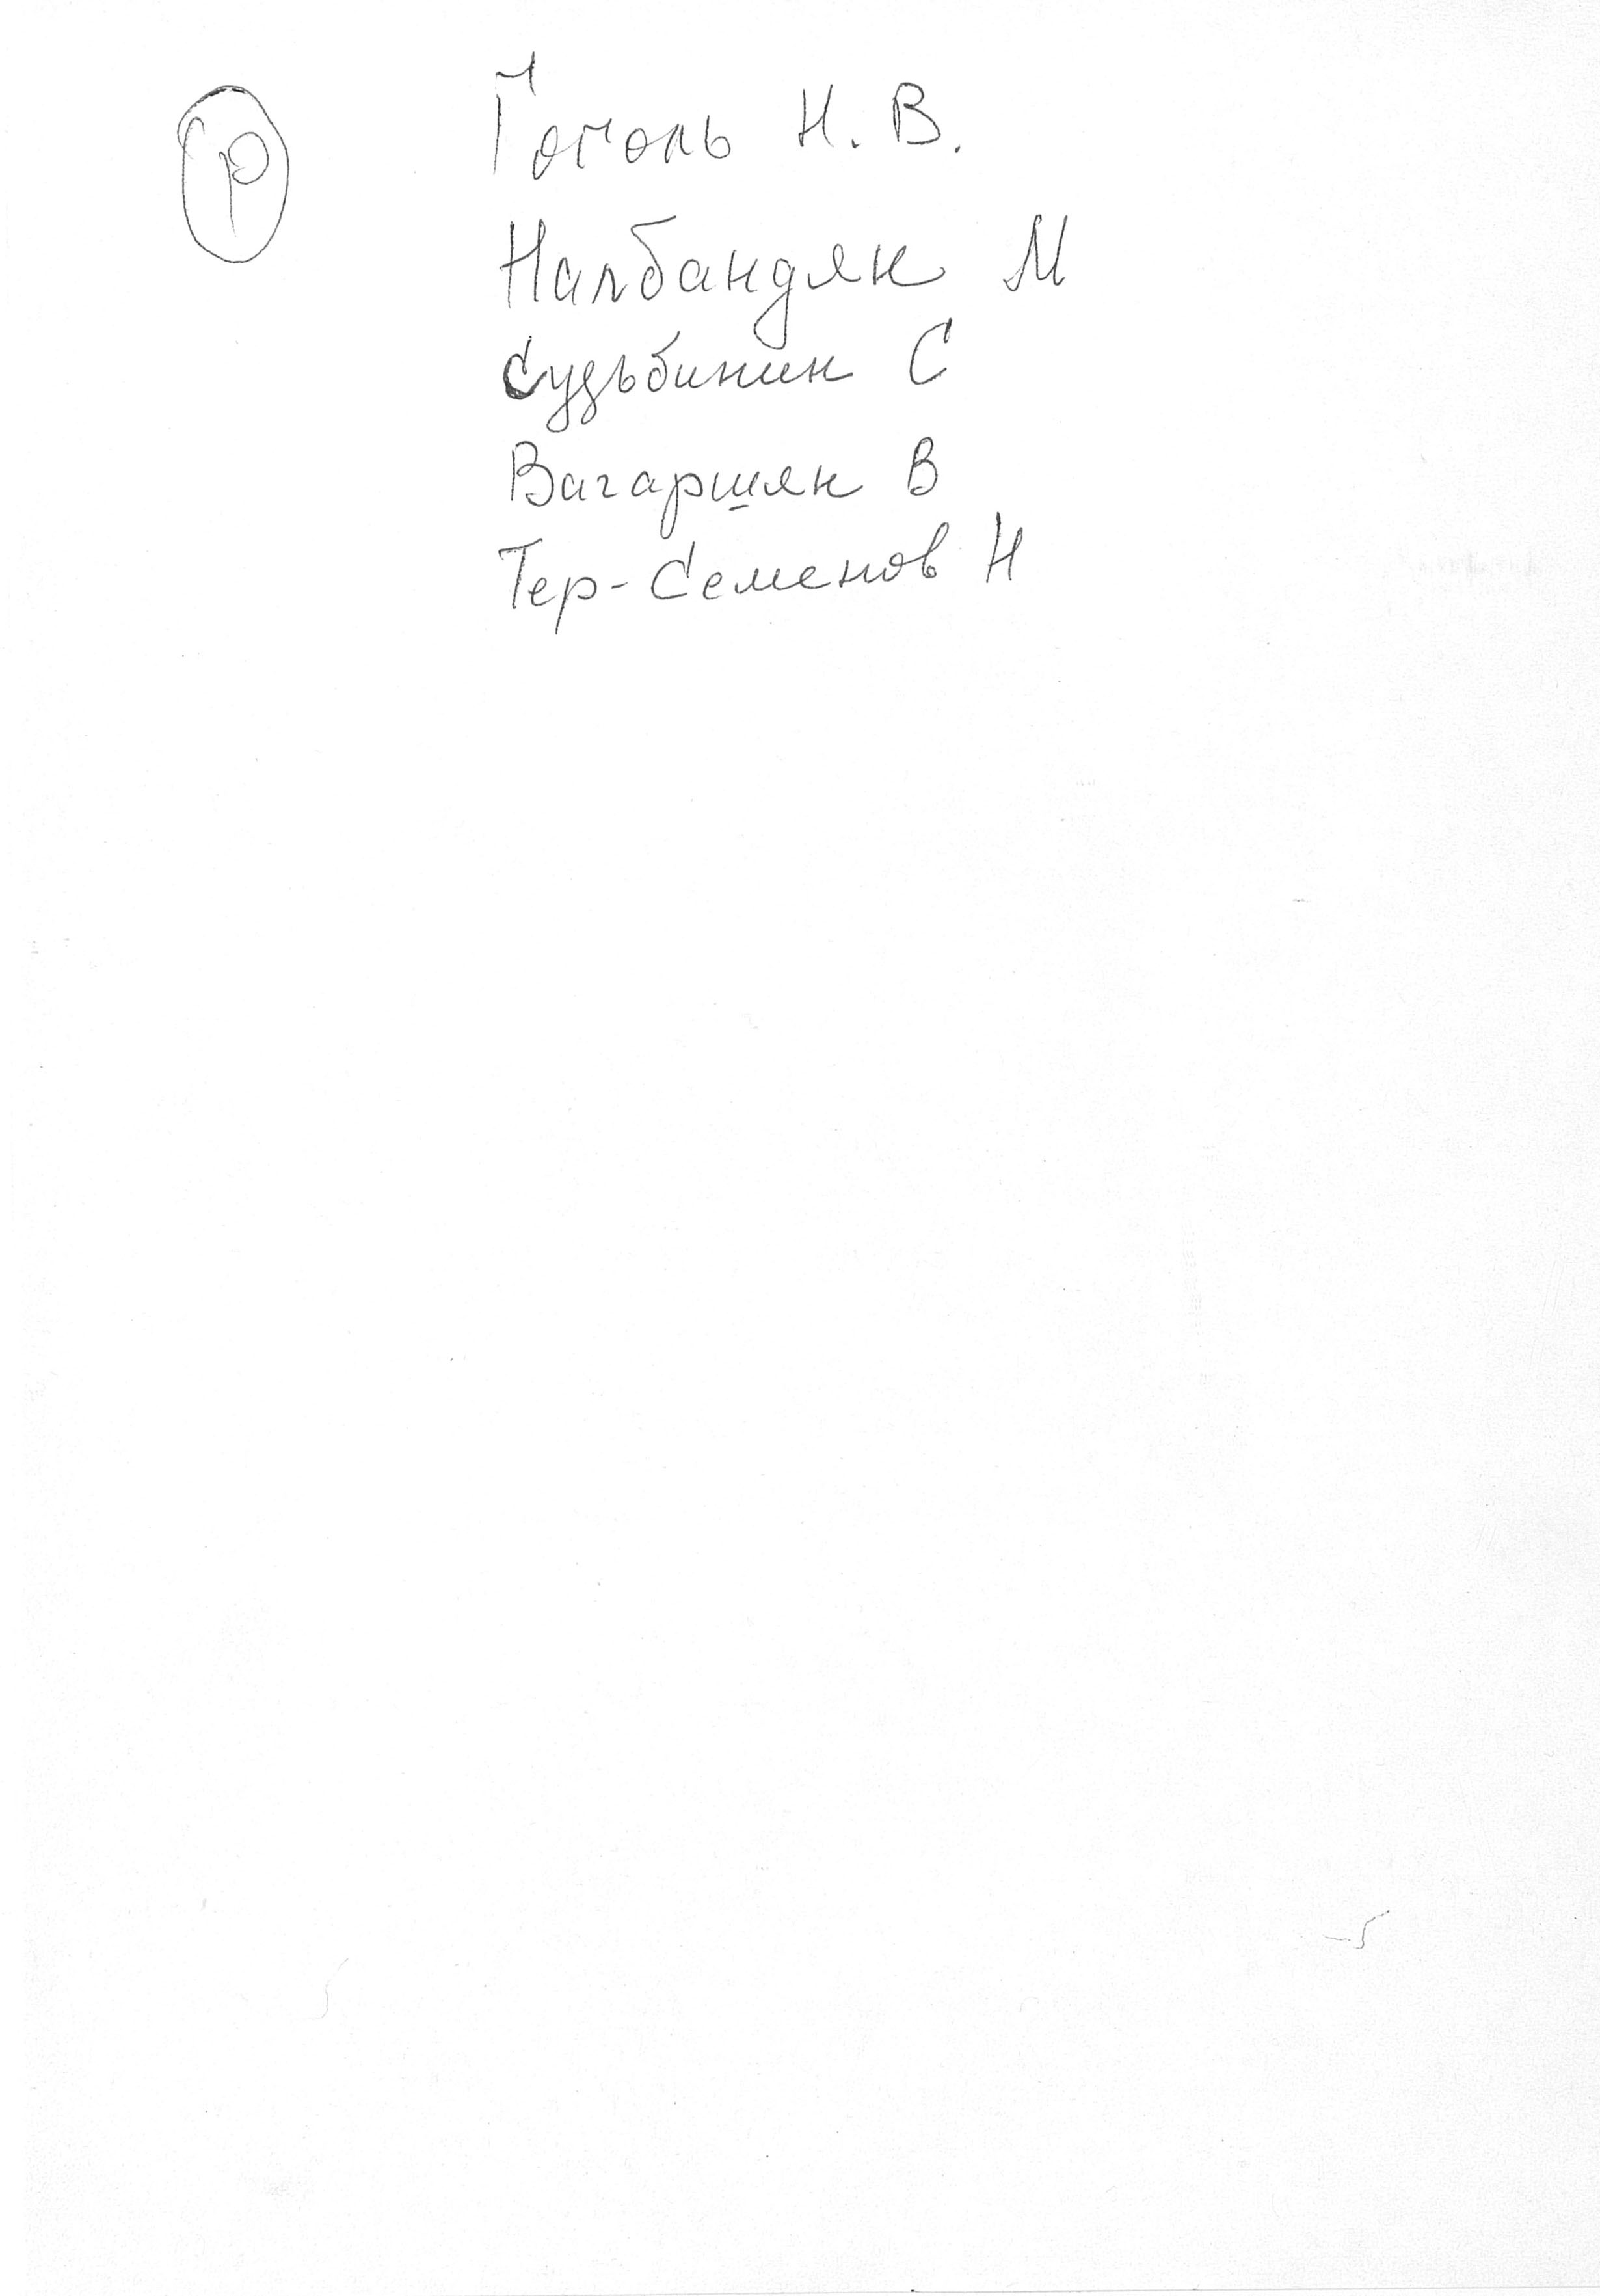 р
Гоголь Н. В.
Налбандян М
Судьбинин С
Вагаршян В
Тер-Семенов Н